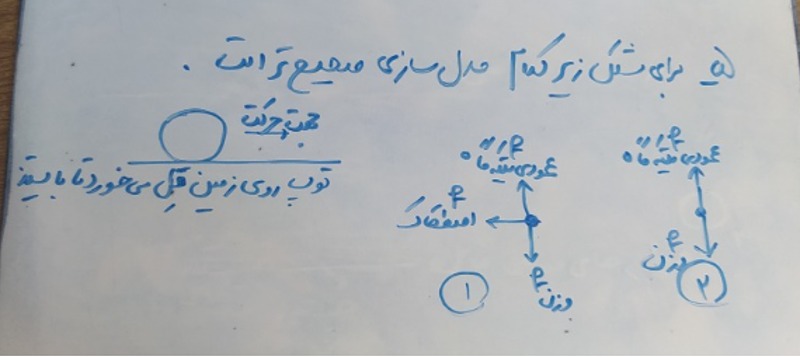 ۵ـ برای شکل زیر کدام مدل سازی صحیح تر است .
جهت حرکت
توپ روی زمین قِل می‌خورد تا بایستد
F عمودی تکیه گاه
F اصطکاک
F وزن
۱
F عمودی تکیه گاه
F وزن
۲